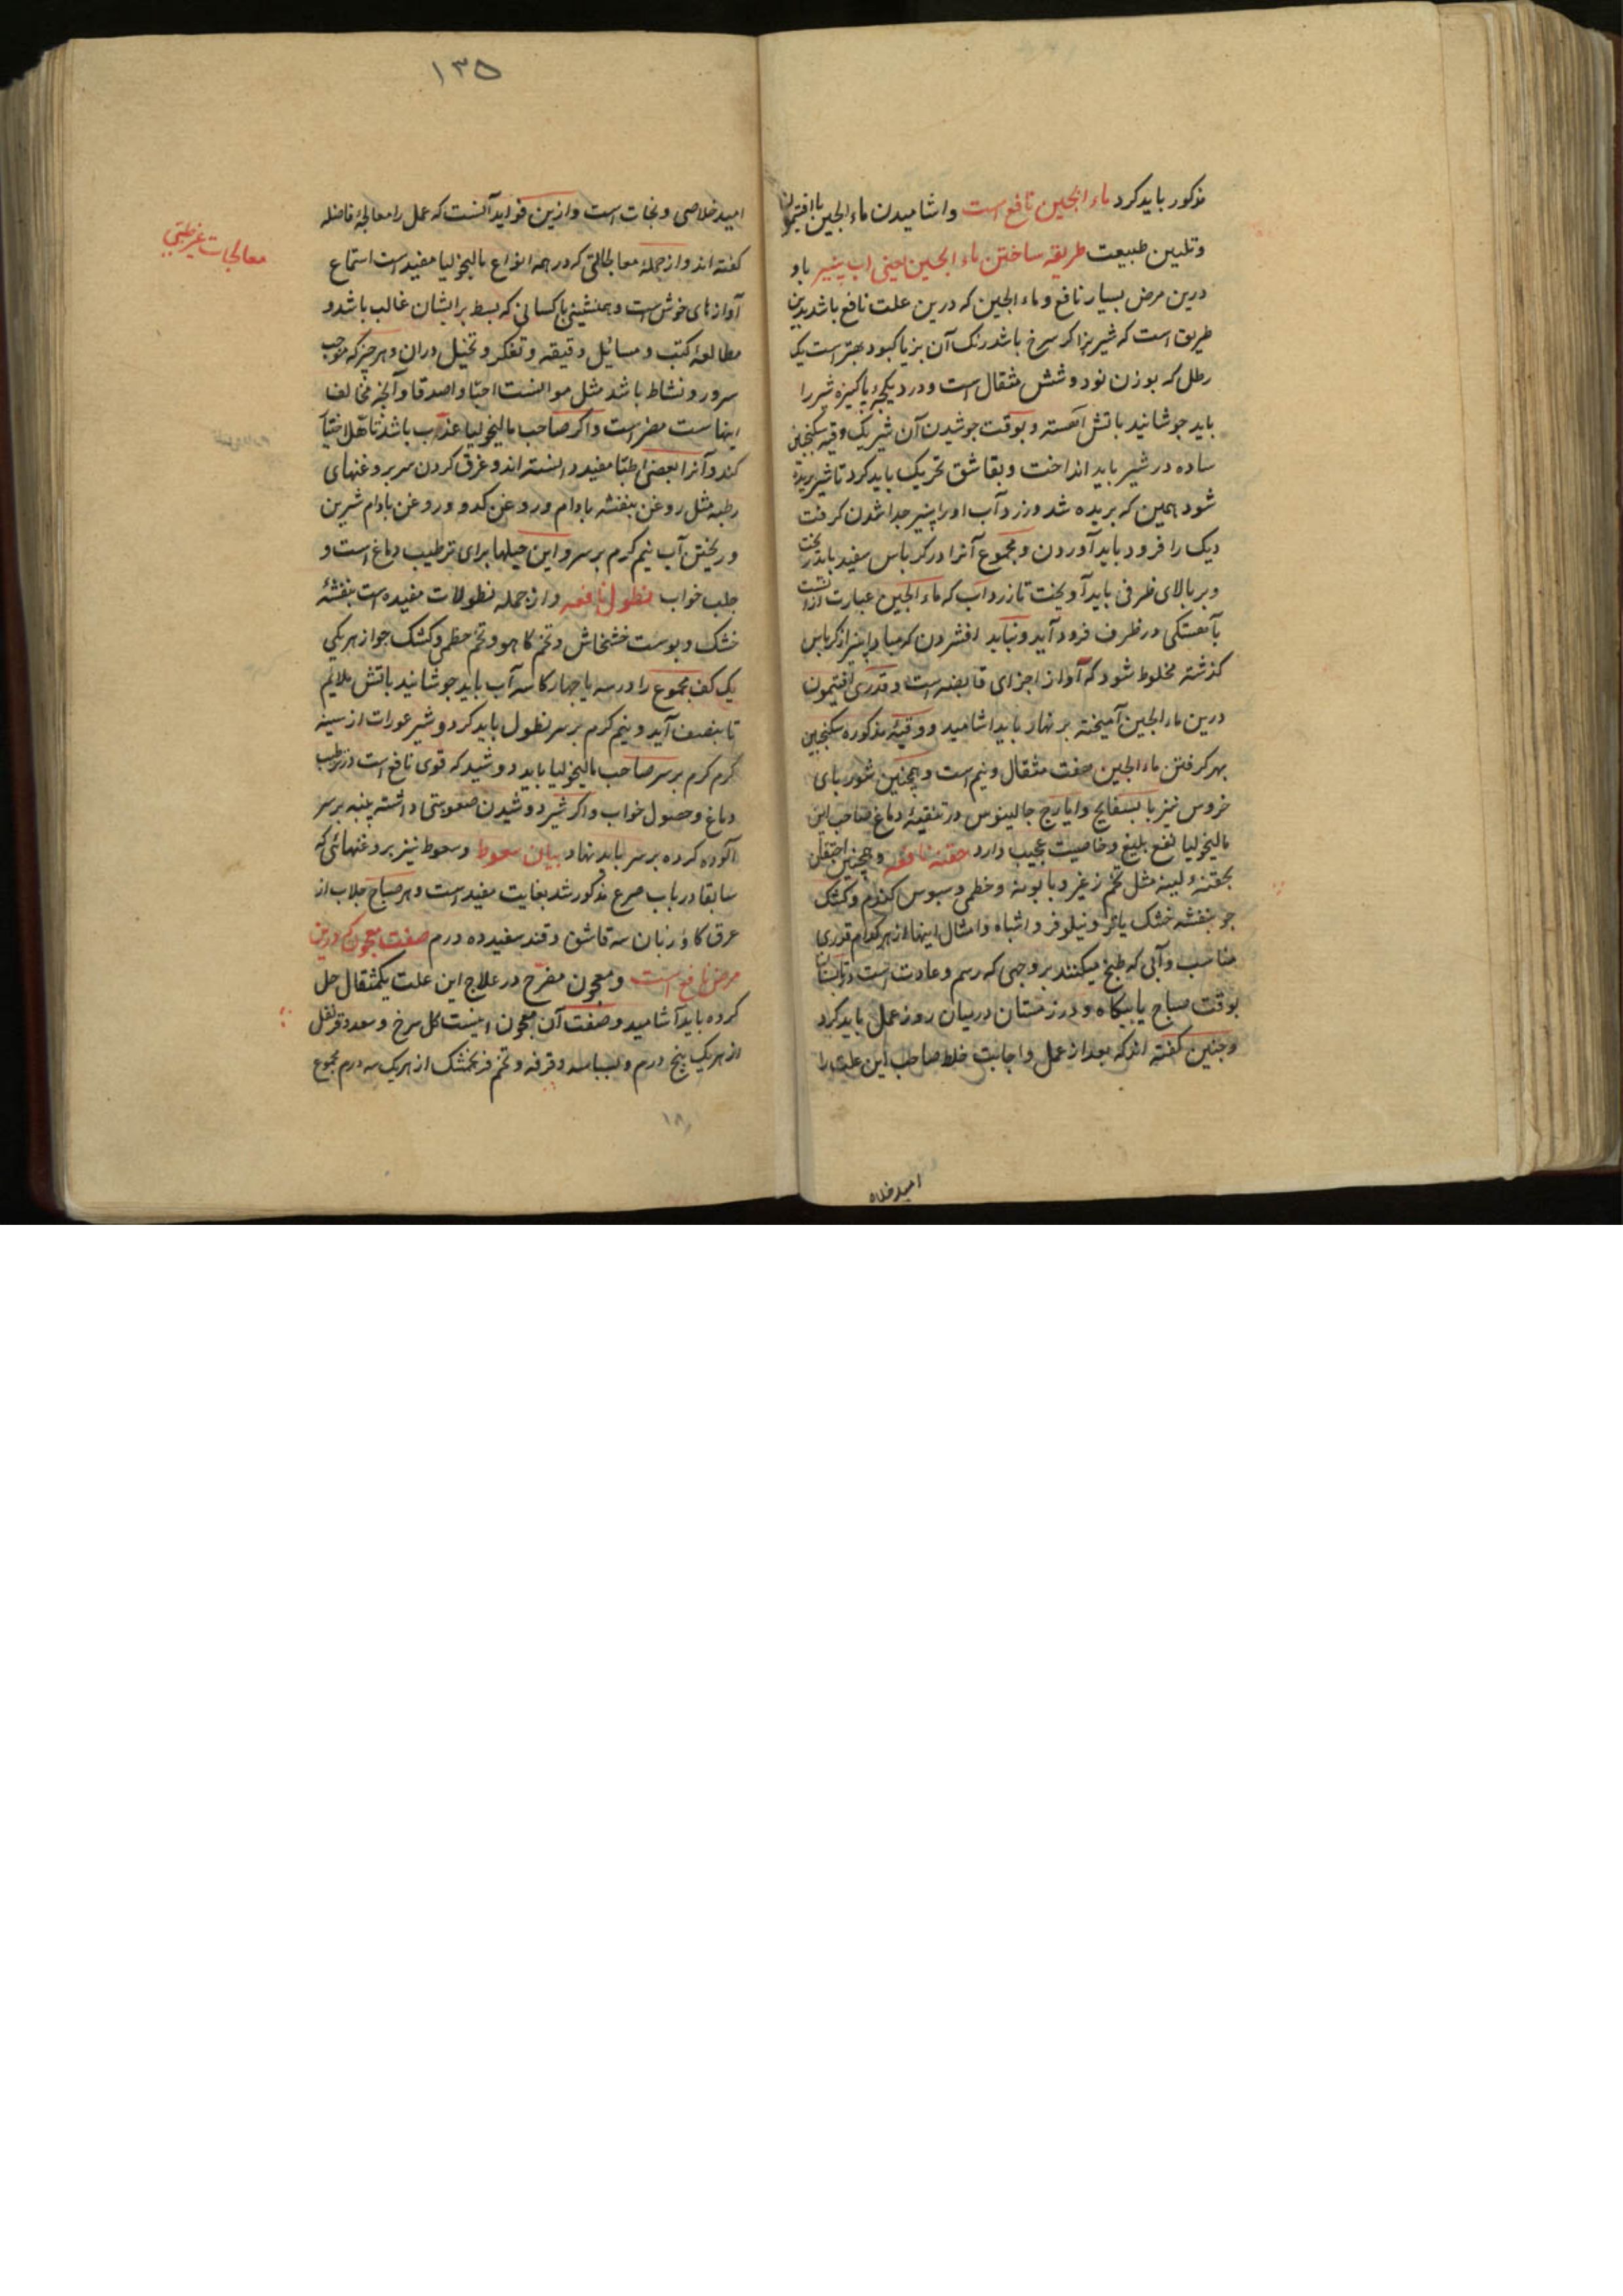 مذکور باید کرد ماء الجبن نافع است واشامیدن ماء الجبن با افتیمون
وتلیین طبیعت طریقه ساختن ماء الجبن یعنی اب پنیر باو
درین مرض بسیار نافع و ماء الجبن که درین علت نافع باشد بدین
طریق است که شیر بز اکر سرخ باشد رنک آن بز یا کبود بهتر است یک
رطل که بوزن نود و شش مثقال است و در دیکچهٔ پاکیزه شیر را
باید جوشانید باتش آهسته و بوقت جوشیدن آن شیر یک وقیه سکنجبین
ساده در شیر باید انداخت و بقاشق تحریک باید کرد تا شیر بریده
شود همین که بریده شد و زردآب او از پنیر جدا شدن کرفت
دیک را فرود باید آوردن و مجموع آنرا در کرباس سفید باید ریخت
و بر بالای ظرفی باید آویخت تا زرداب که ماء الجبن عبارت ازوا
بآهستکی در ظرف فرود آید و نباید افشردن که مبادا پنیر از کرباس
کذشته مخلوط شود که آواز اجزای قابضه است و قدری افتیمون
درین ماء الجبن آمیخته بر نهار باید اشامید و وقیهٔ مذکوره سکنجبین
بهر کرفتن ماء الجبن هفت مثقال و نیم است و همچنین شوربای
خروس نیز با بسفایج و ایارج جالینوس در تنقیهٔ دماغ صاحب این
مالیخولیا نفع بلیغ و خاصیت عجیب دارد حقنه نافعه و همچنین احتقان
بحقنهٔ لینه مثل تخم زغیر و بابونه و خطمی و سبوس کندم و کشک
جو بنفشه خشک یا تر و نیلوفر و اشباه و امثال اینها از هر کدام قدری
مناسب و آبی که طبخ میکنند بر وجهی که رسم و عادت است در تابستان
بوقت صباح یا بیکاه و در زمستان در میان روز عمل باید کرد
و جنین کفته اند که بعد از عمل و اجابت خلط صاحب این علت را
امید خلاص
۱۳۵
امید خلاصی و نجات است و ازین فواید آنست که عمل را معالجهٔ فاضله
کفته اند و از جملهٔ معالجاتی که در همه انواع مالیخولیا مفید است استماع
آوازهای خوش است و همنشینی با کسانی که بسط بر ایشان غالب باشد و
مطالعهٔ کتب و مسائل دقیقه و تفکر و تخیل دران و هر چیز که موجب
سرور و نشاط باشد مثل موانست احبّا و اصدقا و آنچه مخالف
اینهاست مضر است و اکر صاحب مالیخولیا عذب باشد تاهّل اختیار
کند و آنرا بعضی اطبّا مفید دانسته اند و غرق کردن سر بروغنهای
رطبه مثل روغن بنفشه بادام و روغن کدو و روغن بادام شیرین
و ریختن آب نیم کرم بر سر و این حیلها برای ترطیب دماغ است و
جلب خواب نطول نافعه و از جمله نطولات مفیده است بنفشهٔ
خشک و پوست خشخاش و تخم کاهو و تخم خطمی و کشک جو از هر یکی
یک کف مجموع را در سه یا چهار کاسه آب باید جوشانید باتش ملایم
تا بنصف آید و نیم کرم بر سر نطول باید کرد و شیر عورات از سینه
کرم کرم بر سر صاحب مالیخولیا باید دوشید که قوی نافع است در ترطیب
دماغ و حصول خواب و اکر شیر دوشیدن صعوبتی داشته پنبه بر سر
آلوده کرده بر سر باید نهاد بیان سعوط و سعوط نیز بروغنهائی که
سابقا در باب صرع مذکور شد بغایت مفید است و هر صباح جلاب از
عرق کاوزبان سه قاشق و قند سفید ده درم صفت معجون که درین
مرض نافع است و معجون مفرّح در علاج این علت یکمثقال حل
کرده باید آشامید و صفت آن معجون اینست کل سرخ و سعد و قرنفل
از هر یک پنج درم و بسباسه و قرفه و تخم فرنجمشک از هر یک سه درم مجموع
معالجات غیر طبّی